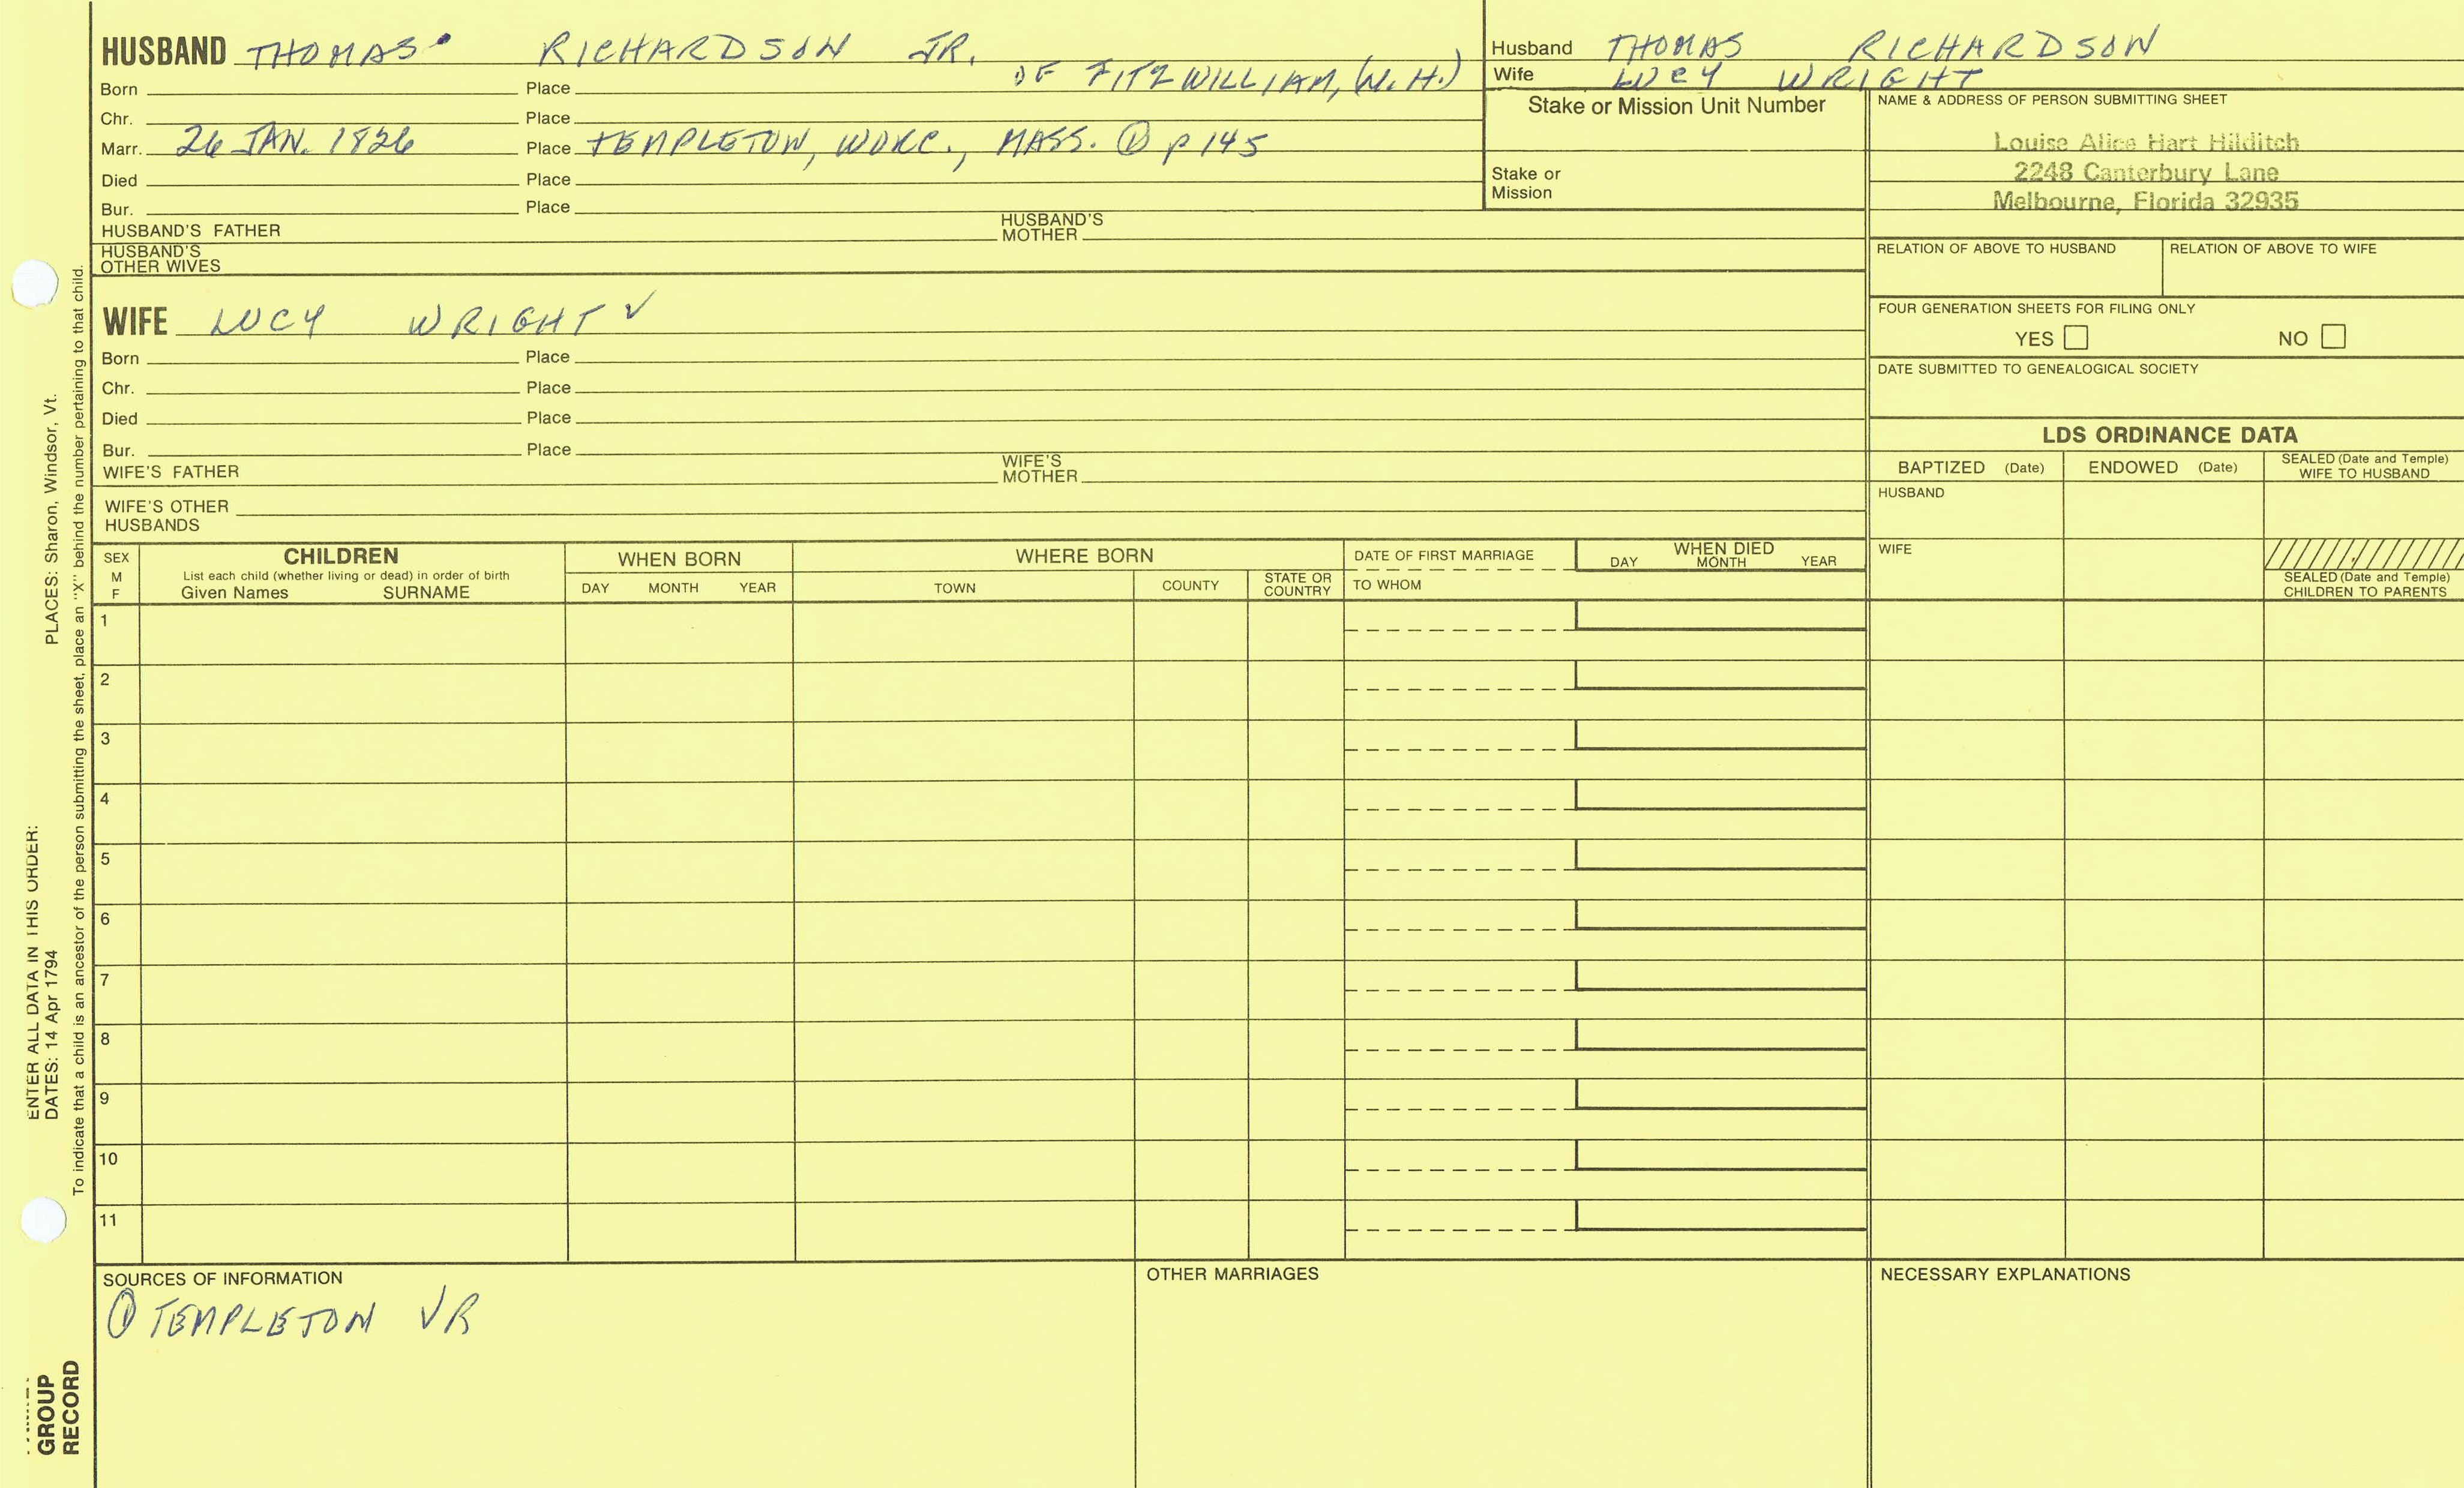 HUSBAND THOMAS RICHARDSON JR.
OF FITZWILLIAM, (N.H.)
Born Place
Chr. Place
Marr. 26 JAN. 1826 Place TEMPLETON, WORC., MASS. ① p 145
Died Place
Bur. Place
HUSBAND'S FATHER HUSBAND'S MOTHER
HUSBAND'S OTHER WIVES
Husband THOMAS RICHARDSON
Wife LUCY WRIGHT
Stake or Mission Unit Number
Stake or
Mission
NAME & ADDRESS OF PERSON SUBMITTING SHEET
Louise Alice Hart Hilditch
2248 Canterbury Lane
Melbourne, Florida 32935
RELATION OF ABOVE TO HUSBAND RELATION OF ABOVE TO WIFE
FOUR GENERATION SHEETS FOR FILING ONLY
YES NO
DATE SUBMITTED TO GENEALOGICAL SOCIETY
WIFE LUCY WRIGHT ✓
Born Place
Chr. Place
Died Place
Bur. Place
WIFE'S FATHER WIFE'S MOTHER
WIFE'S OTHER
HUSBANDS
LDS ORDINANCE DATA
BAPTIZED (Date) ENDOWED (Date) SEALED (Date and Temple) WIFE TO HUSBAND
HUSBAND
WIFE
SEALED (Date and Temple)
CHILDREN TO PARENTS
SEX
M
F
CHILDREN
List each child (whether living or dead) in order of birth
Given Names SURNAME
WHEN BORN
DAY MONTH YEAR
WHERE BORN
TOWN COUNTY STATE OR COUNTRY
DATE OF FIRST MARRIAGE
TO WHOM
WHEN DIED
DAY MONTH YEAR
1
2
3
4
5
6
7
8
9
10
11
SOURCES OF INFORMATION
① TEMPLETON VR
OTHER MARRIAGES
NECESSARY EXPLANATIONS
ENTER ALL DATA IN THIS ORDER:
DATES: 14 Apr 1794 PLACES: Sharon, Windsor, Vt.
To indicate that a child is an ancestor of the person submitting the sheet, place an "X" behind the number pertaining to that child.
GROUP
RECORD